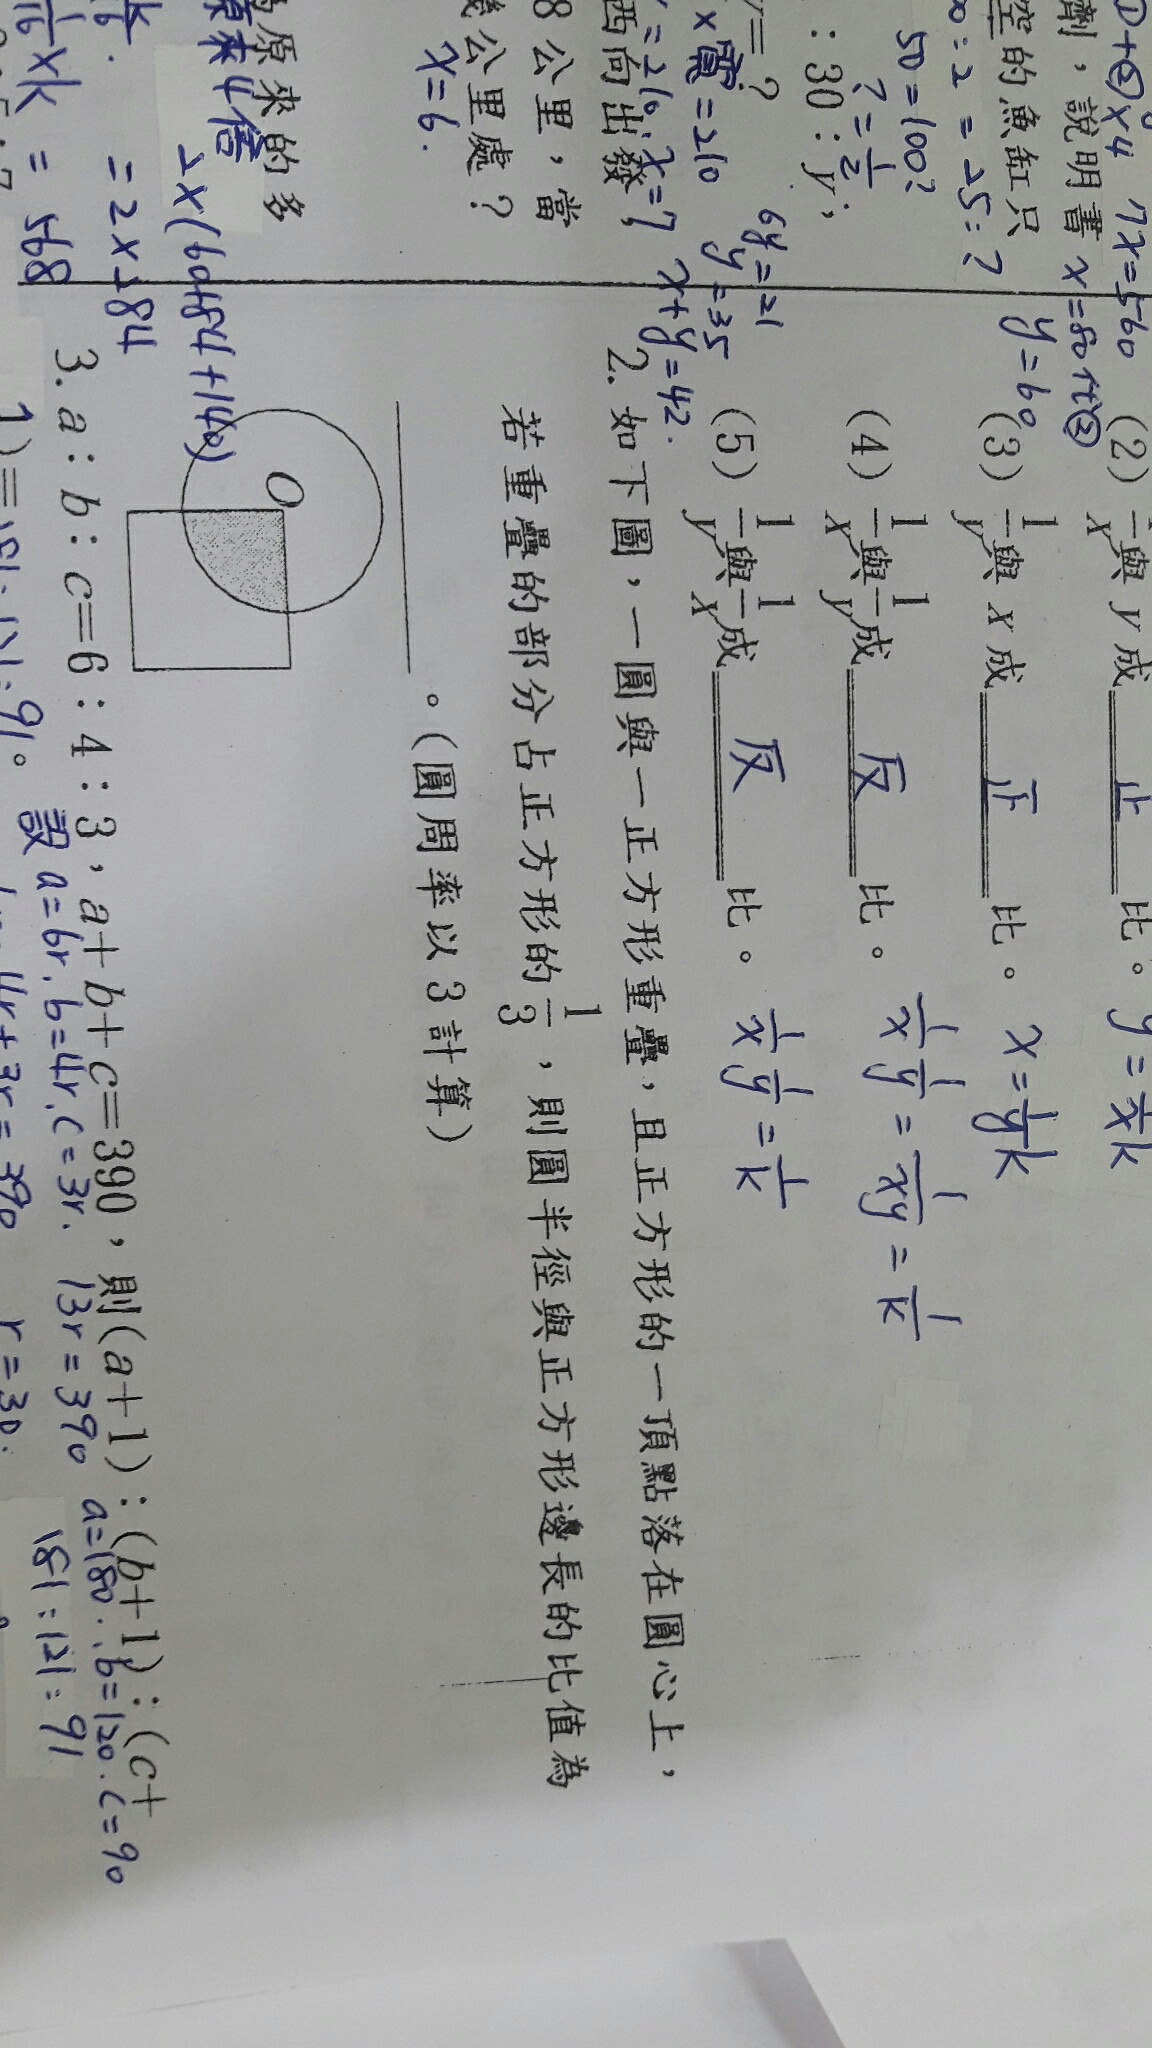 ①+②×4 7x=560
劑，說明書 x=80代②
空的魚缸只 y=60
50=100:?
:30:y，
?=1/2
y=?
6y=21
y=35
x+y=42.
西向出發
8公里，當
幾公里處？
x=6.
原來的多
原來4倍
2×(60+84+140)
=2×284
=568
(2) 與 y 成 正 比。 y=1/x k
(3) 1/y 與 x 成 正 比。 x=1/y k
(4) 1/x 與 1/y 成 反 比。 1/x 1/y = 1/xy = 1/k
(5) 1/y 與 1/x 成 反 比。 1/x 1/y = 1/k
2. 如下圖，一圓與一正方形重疊，且正方形的一頂點落在圓心上，
若重疊的部分占正方形的1/3，則圓半徑與正方形邊長的比值為
。(圓周率以3計算)
O
3. a：b：c=6：4：3，a+b+c=390，則(a+1)：(b+1)：(c+
設a=6r.b=4r.c=3r. 13r=390 a=180.b=120.c=90
1)=181:121:91。
r=30.
181:121:91